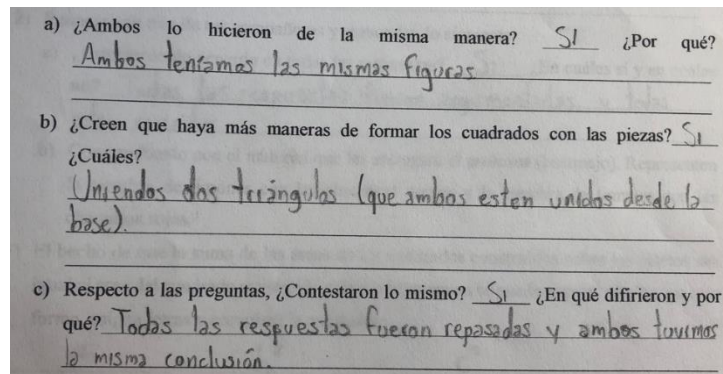 a) ¿Ambos lo hicieron de la misma manera? SI ¿Por qué?
Ambos teníamos las mismas figuras
b) ¿Creen que haya más maneras de formar los cuadrados con las piezas? Si
¿Cuáles?
Uniendos dos triángulos (que ambos esten unidos desde la
base).
c) Respecto a las preguntas, ¿Contestaron lo mismo? Si ¿En qué difirieron y por
qué? Todas las respuestas fueron repasadas y ambos tuvimos
la misma conclusión.